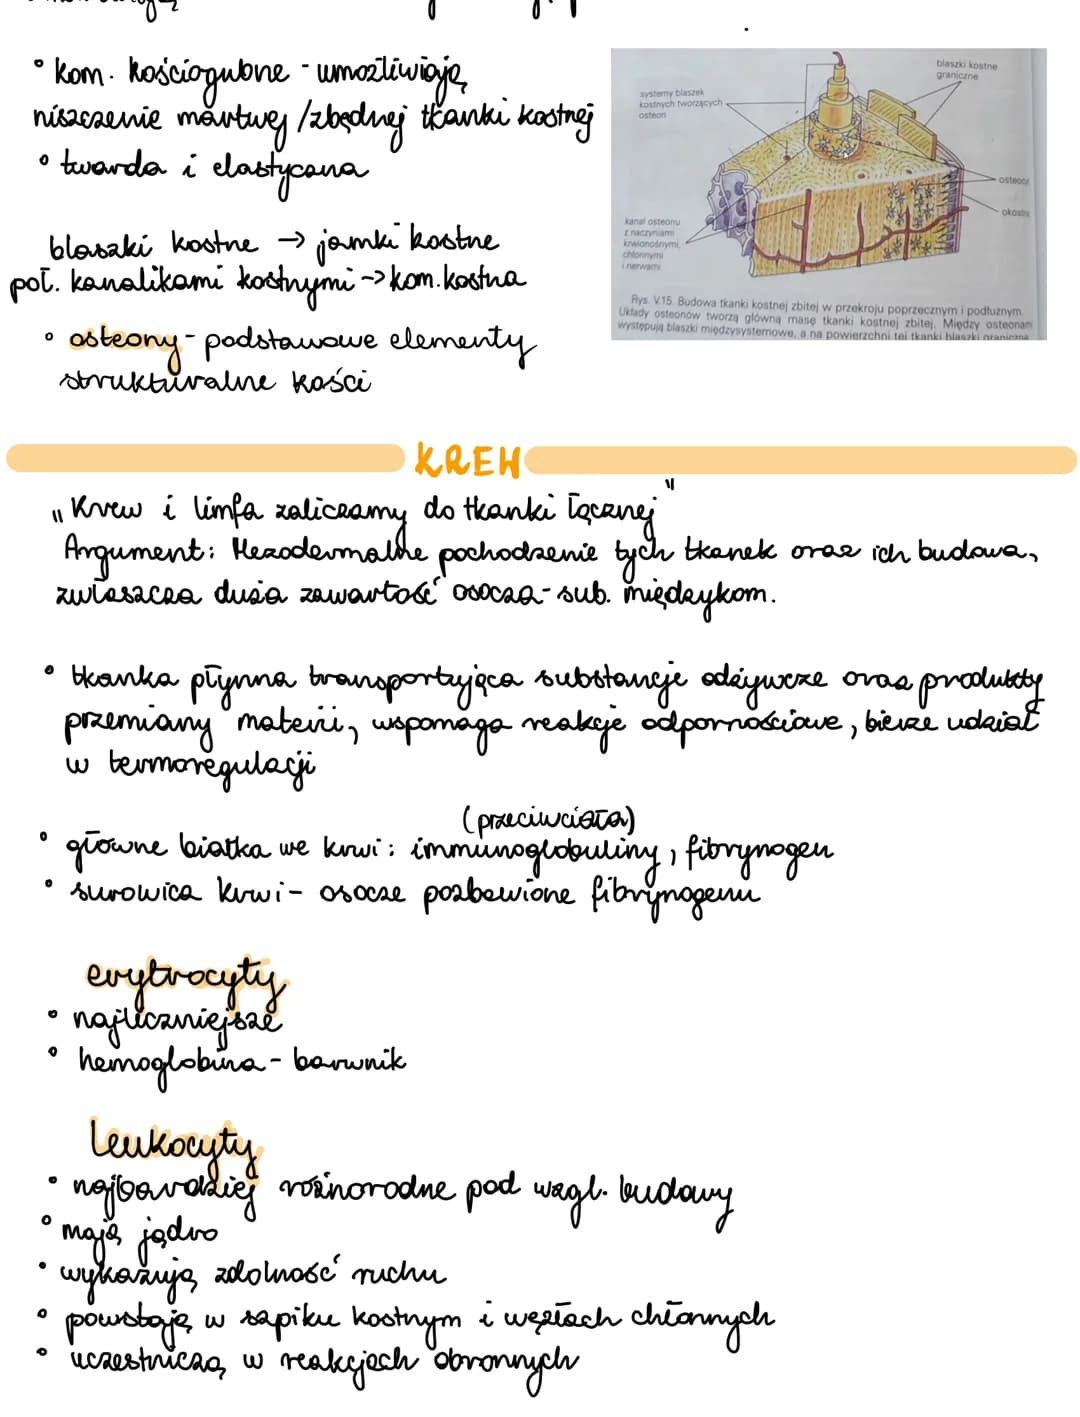 ° kom. kościogubne - umożliwiają
niszczenie martwej / zbędnej tkanki kostnej
° twarda i elastyczna
blaszki kostne → jamki kostne
poł. kanalikami kostnymi -> kom. kostna
° osteony - podstawowe elementy
strukturalne kości
systemy blaszek
kostnych tworzących
osteon
blaszki kostne
graniczne
osteocy
okostn
kanał osteonu
z naczyniami
krwionośnymi,
chłonnymi
i nerwami
Rys. V.15. Budowa tkanki kostnej zbitej w przekroju poprzecznym i podłużnym.
Układy osteonów tworzą główną masę tkanki kostnej zbitej. Między osteonam
występują blaszki międzysystemowe, a na powierzchni tej tkanki blaszki graniczne
KREW
„Krew i limfa zaliczamy do tkanki łącznej"
Argument: Mezodermalne pochodzenie tych tkanek oraz ich budowa,
zwłaszcza duża zawartość osocza - sub. międzykom.
° tkanka płynna transportująca substancje odżywcze oraz produkty
przemiany materii, wspomaga reakcje odpornościowe, bierze udział
w termoregulacji
(przeciwciała)
° główne białka we krwi: immunoglobuliny, fibrynogen
° surowica krwi - osocze pozbawione fibrynogenu
erytrocyty
° najliczniejsze
° hemoglobina - barwnik
leukocyty
° najbardziej różnorodne pod wzgl. budowy
° mają jądro
° wykazują zdolność ruchu
° powstają w szpiku kostnym i węzłach chłonnych
° uczestniczą w reakcjach obronnych